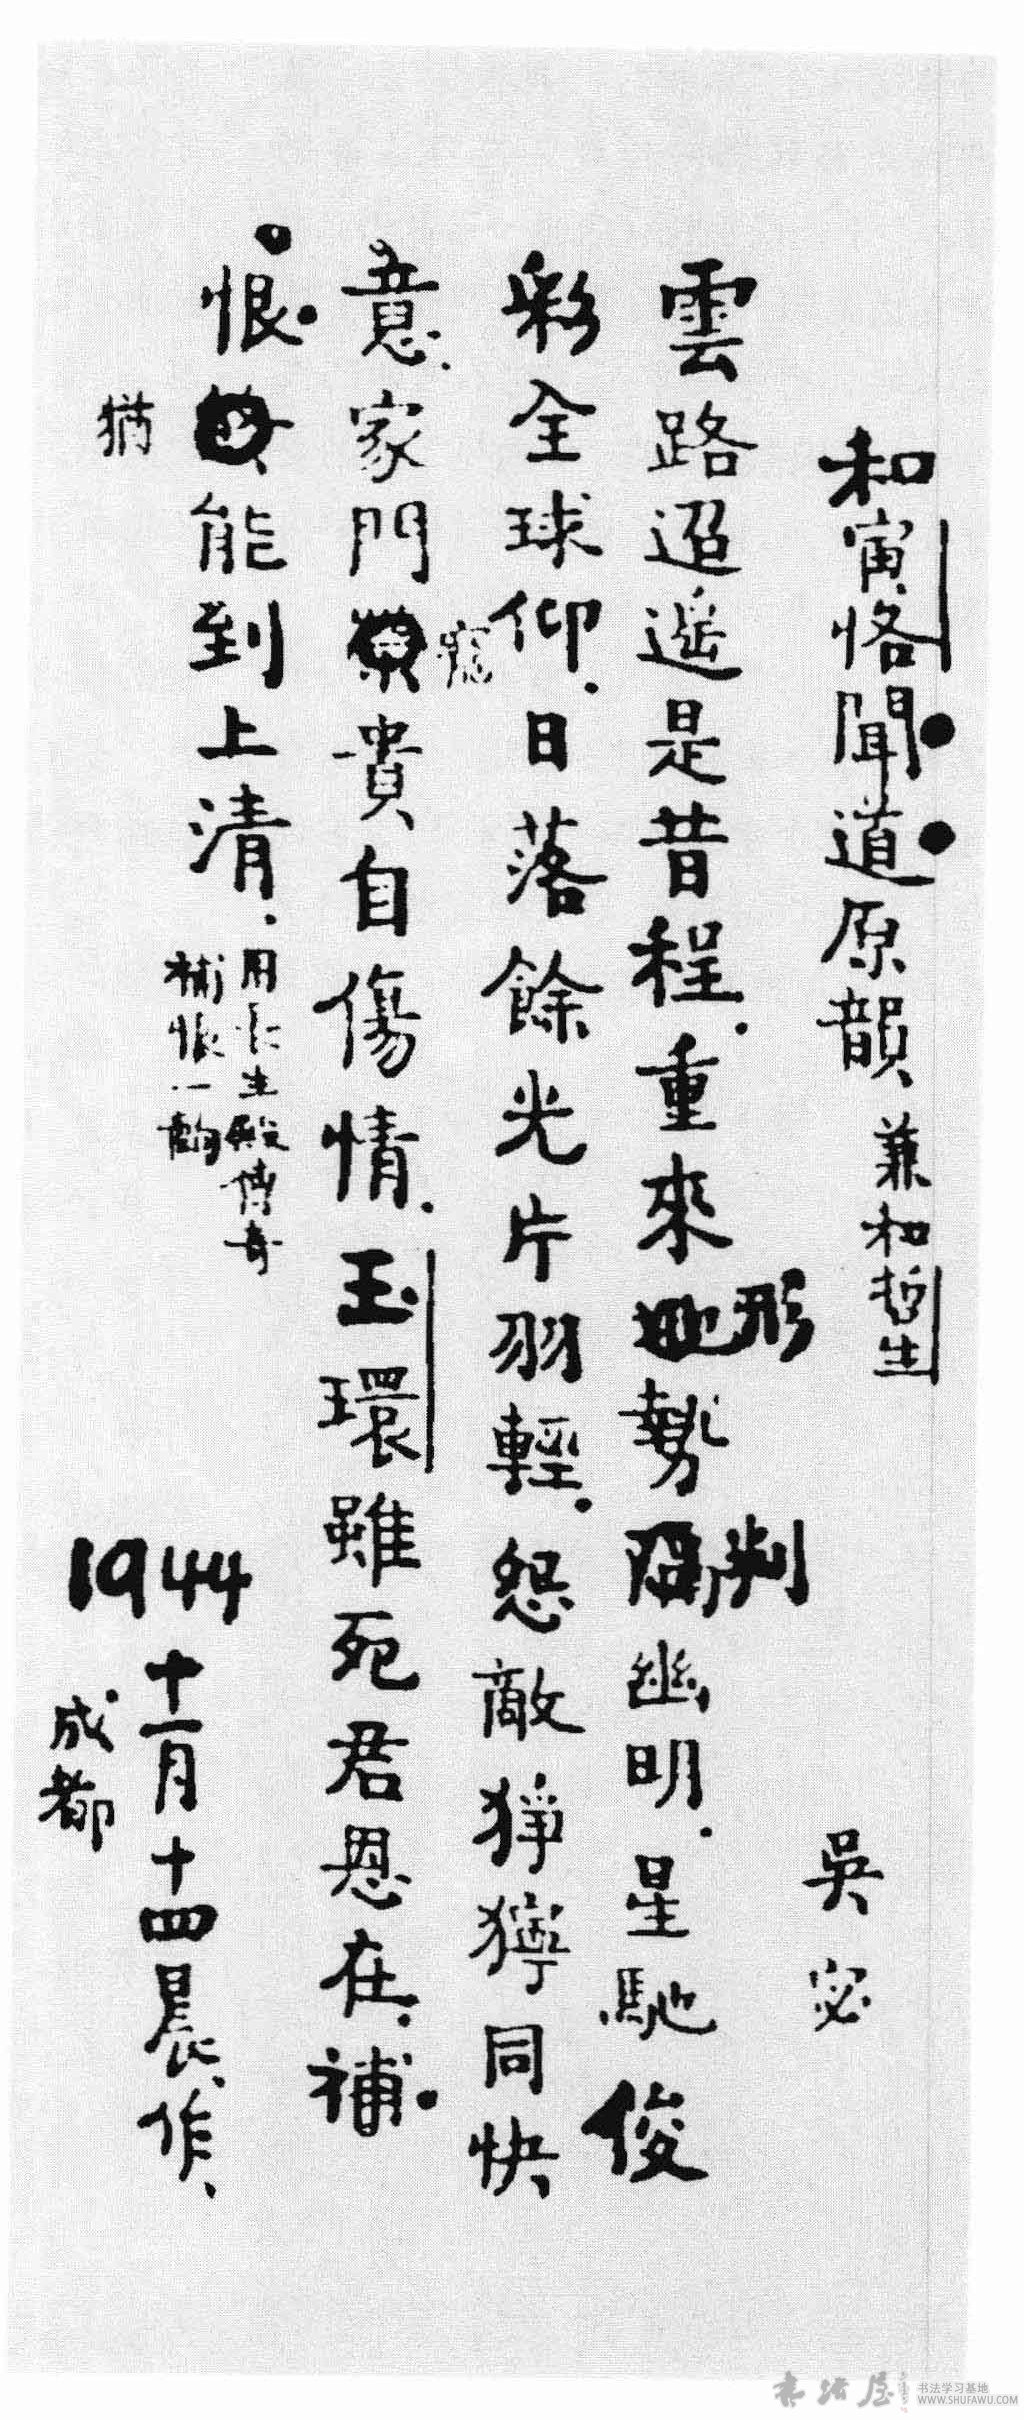 和寅恪聞道原韻、兼和哲生
吳宓
雲路迢遥是昔程.重來形勢判幽明.星馳俊
彩全球仰.日落餘光片羽輕.怨敵猙獰同快
意.家門寵貴自傷情.玉環雖死君恩在.補
恨猶能到上清.
用長生殿傳奇
補恨一齣
1944
十一月十四晨、作、
成都
书法屋
书法学习基地
WWW.SHUFAWU.COM